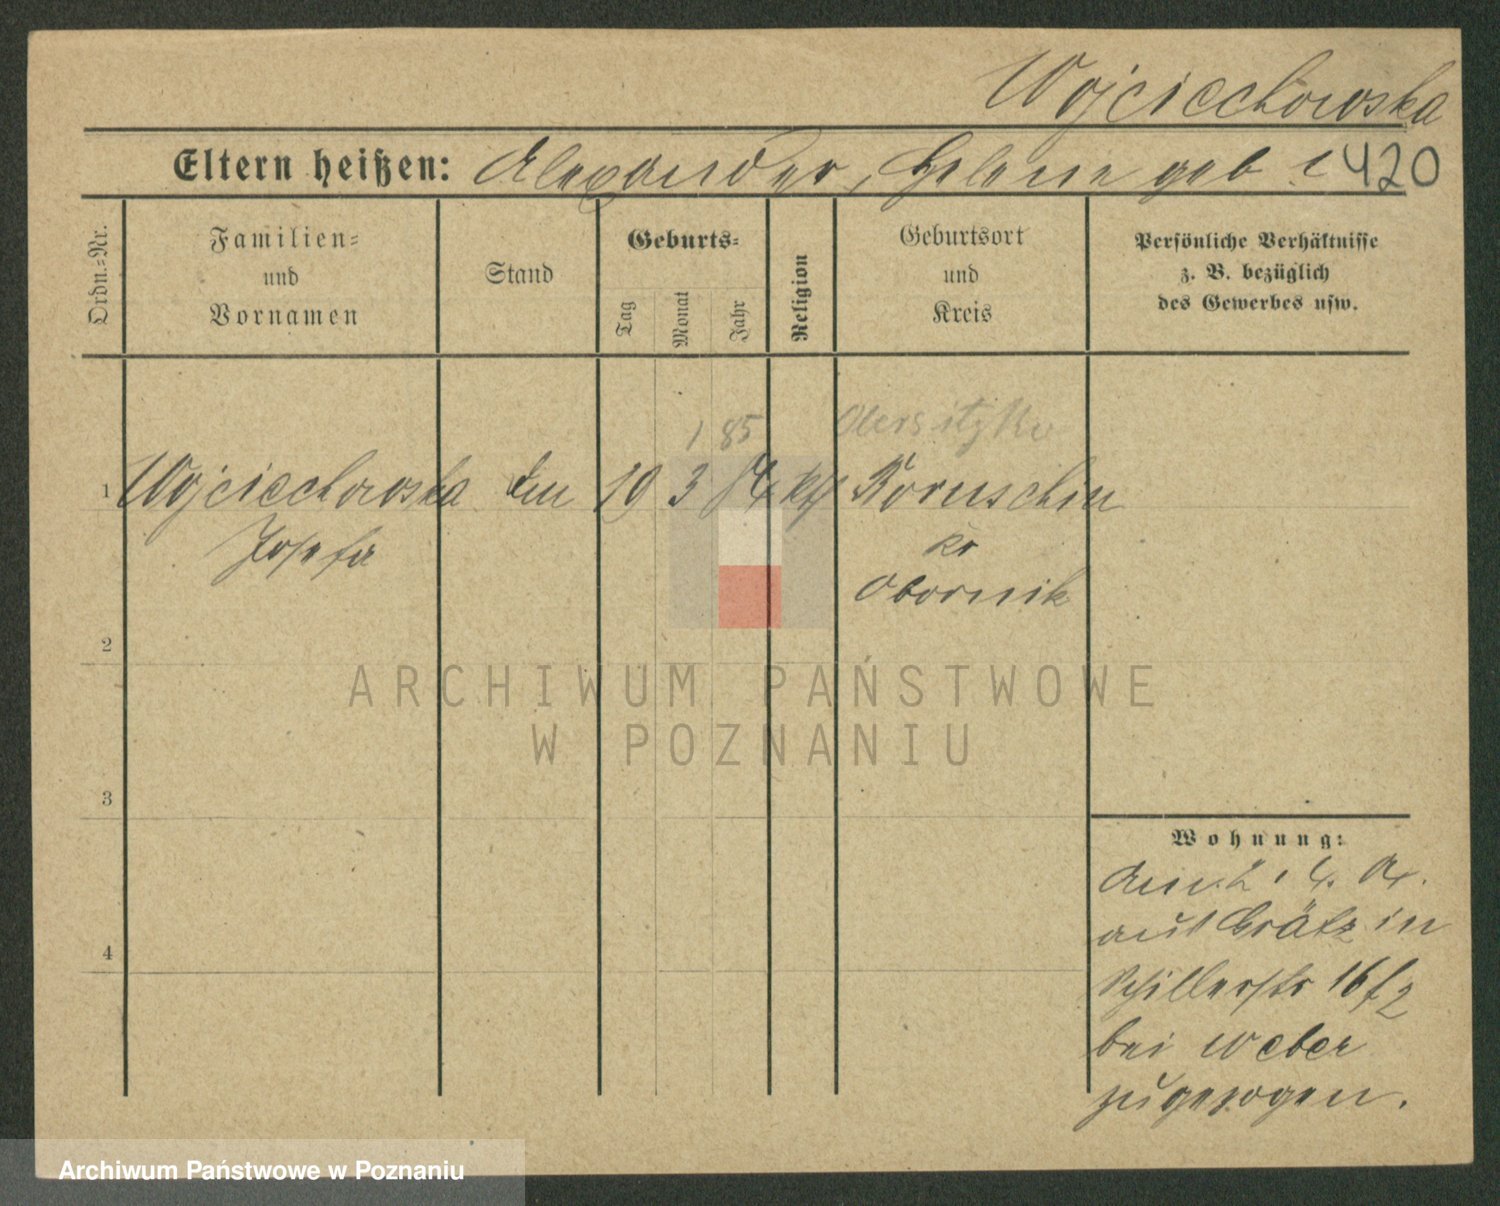 Wojciechowska
Eltern heißen: Alexander, Helene geb. 420
Ordn.-Nr.
Familien-
und
Vornamen
Stand
Geburts-
Tag
Monat
Jahr
Religion
Geburtsort
und
Kreis
Persönliche Verhältnisse
z. B. bezüglich
des Gewerbes usw.
1 85 Obersitzko
1 Wojciechowska 19 3 84 kth Boruschin
Josefa Kr
Obornik
2
3
4
Wohnung:
aus Grätz in
Schillerstr 16 f 2
bei Weber
zugezogen.
ARCHIWUM PAŃSTWOWE
W POZNANIU
Archiwum Państwowe w Poznaniu